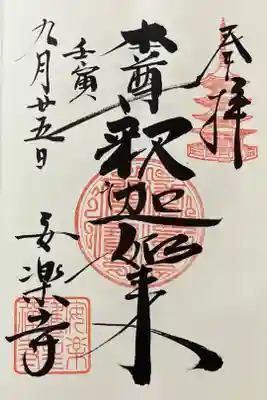 奉拝
本尊釈迦如来
壬寅
九月廿五日
安楽寺